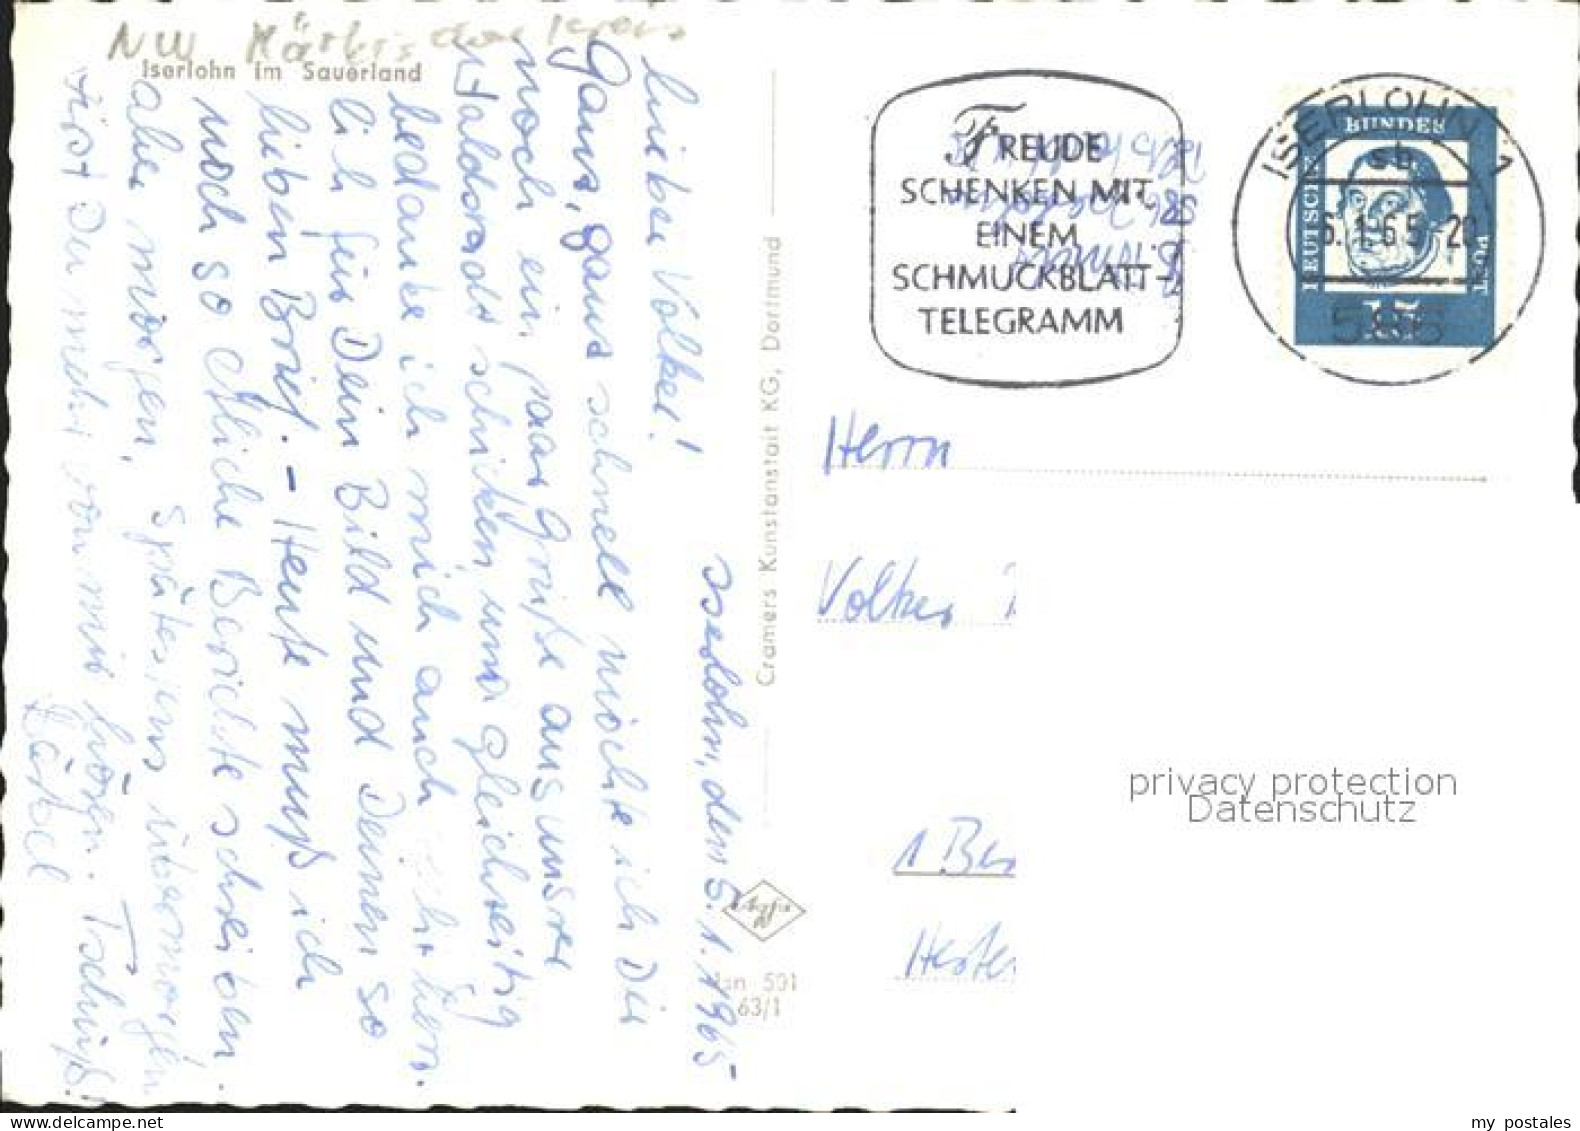 NW Märkischer Kreis
Iserlohn im Sauerland
Iserlohn, den 5.1.1965
Lieber Volker!
Ganz, ganz schnell möchte ich Dir
noch ein paar Grüße aus unsrer
Waldstadt schicken und gleichzeitig
bedanke ich mich auch
lich für Dein Bild und Deinen so
lieben Brief. - Heute muß ich
noch so etliche Berichte schreiben.
aber morgen, spätestens übermorgen
wirst Du mehr von mir hören. Tschüß!
Bärbel
Cramers Kunstanstalt KG, Dortmund
Agfa
591
63/1
FREUDE
SCHENKEN MIT
EINEM
SCHMUCKBLATT-
TELEGRAMM
ISERLOHN 1
sb
6.1.65-20
586
DEUTSCHE
BUNDES
POST
15
Herrn
Volker
1 Ber
privacy protection
Datenschutz
my postales